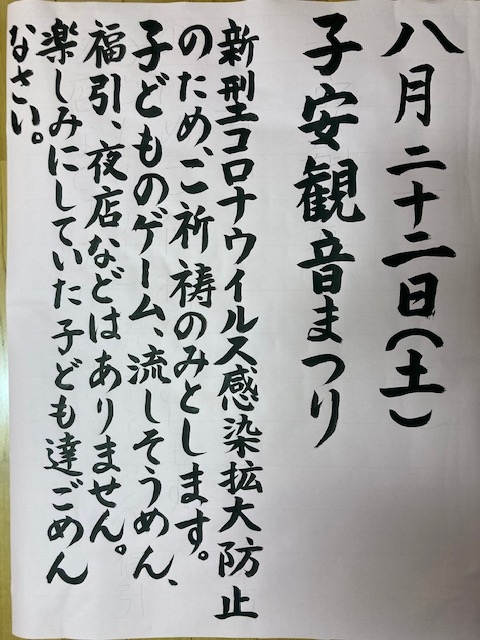 八月二十二日(土)
子安観音まつり
新型コロナウイルス感染拡大防止
のため、ご祈祷のみとします。
子どものゲーム、流しそうめん、
福引、夜店などはありません。
楽しみにしていた子ども達ごめん
なさい。